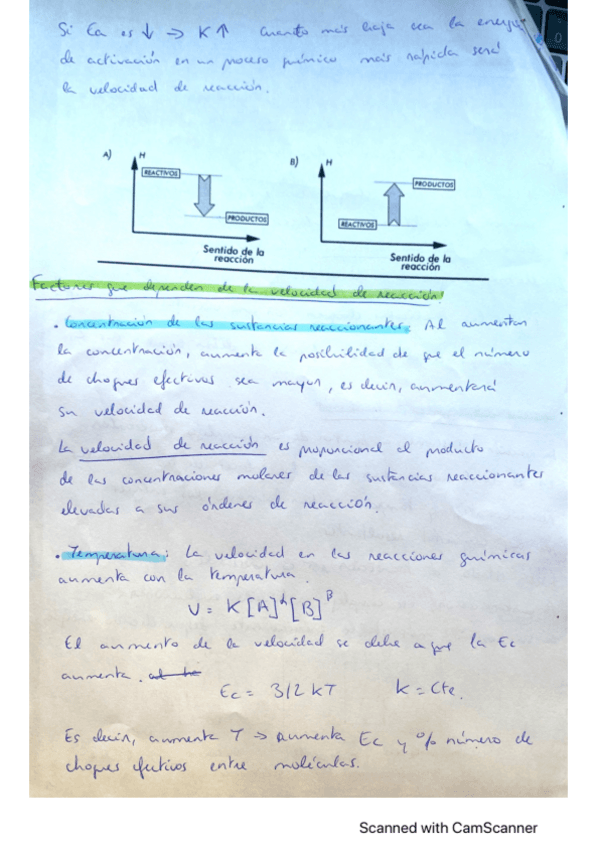 Si Ea es ↓ → K ↑ Cuanto más baja sea la energía
de activación en un proceso químico más rápida será
la velocidad de reacción.
A) H
REACTIVOS
PRODUCTOS
Sentido de la
reacción
B) H
PRODUCTOS
REACTIVOS
Sentido de la
reacción
Factores que dependen de la velocidad de reacción:
· Concentración de las sustancias reaccionantes: Al aumentar
la concentración, aumenta la posibilidad de que el número
de choques efectivos sea mayor, es decir, aumentará
su velocidad de reacción.
La velocidad de reacción es proporcional al producto
de las concentraciones molares de las sustancias reaccionantes
elevadas a sus órdenes de reacción.
· Temperatura: La velocidad en las reacciones químicas
aumenta con la temperatura.
V = K [A]^α [B]^β
El aumento de la velocidad se debe a que la Ec
aumenta.
Ec = 3/2 KT K = Cte.
Es decir, aumenta T → Aumenta Ec y % número de
choques efectivos entre moléculas.
Scanned with CamScanner